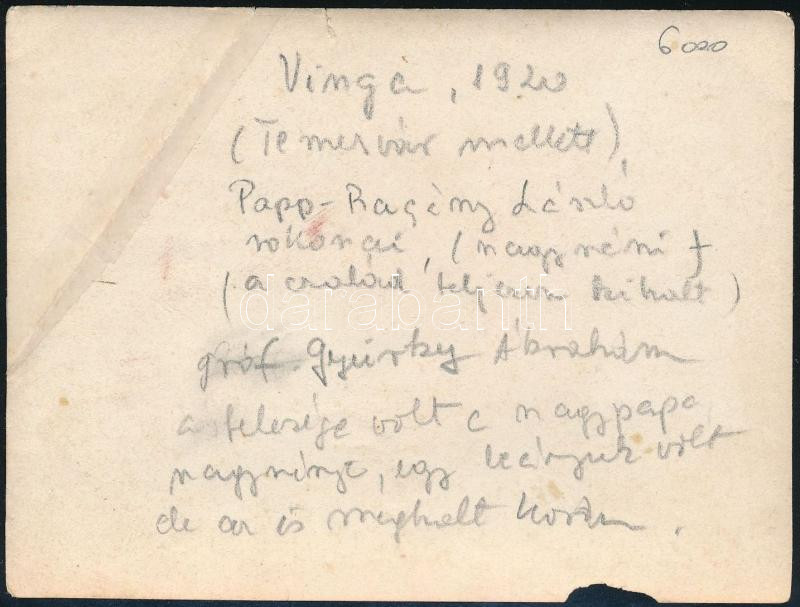 6000
Vinga, 1920
(Temesvár mellett),
Papp-Ragány László
rokonai, (nagynéni †
(a család teljesen kihalt)
darabanth
gróf Gyürky Ábrahám
a felesége volt a nagypapa
nagynénje, egy leányuk volt
de az is meghalt korán.